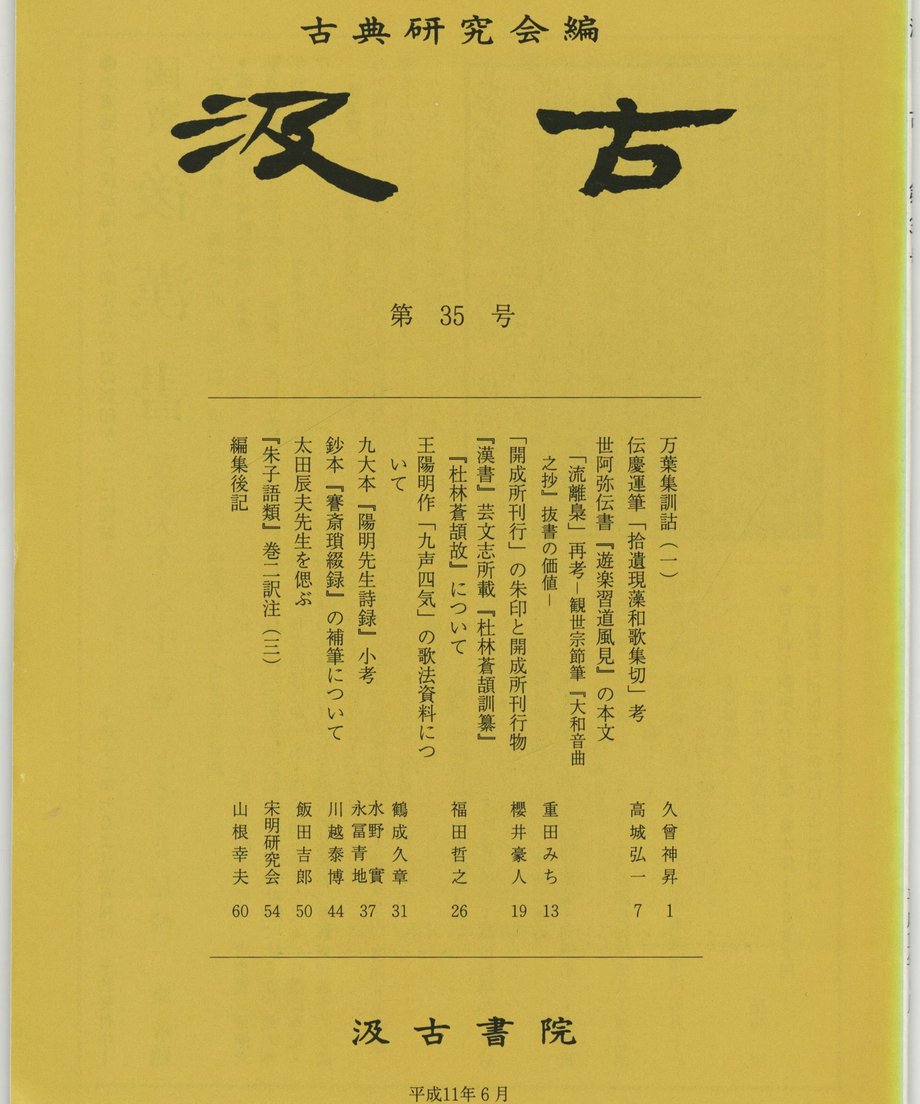 古典研究会編
汲古
第 35 号
万葉集訓詁（一） 久曾神昇 1
伝慶運筆「拾遺現藻和歌集切」考 高城弘一 7
世阿弥伝書『遊楽習道風見』の本文
「流離梟」再考－観世宗節筆『大和音曲
之抄』抜書の価値－ 重田みち 13
「開成所刊行」の朱印と開成所刊行物 櫻井豪人 19
『漢書』芸文志所載『杜林蒼頡訓纂』
『杜林蒼頡故』について 福田哲之 26
王陽明作「九声四気」の歌法資料につ
いて 鶴成久章 31
九大本『陽明先生詩録』小考 水野實 永冨青地 37
鈔本『謇斎瑣綴録』の補筆について 川越泰博 44
太田辰夫先生を偲ぶ 飯田吉郎 50
『朱子語類』巻二訳注（三） 宋明研究会 54
編集後記 山根幸夫 60
汲古書院
平成11年6月